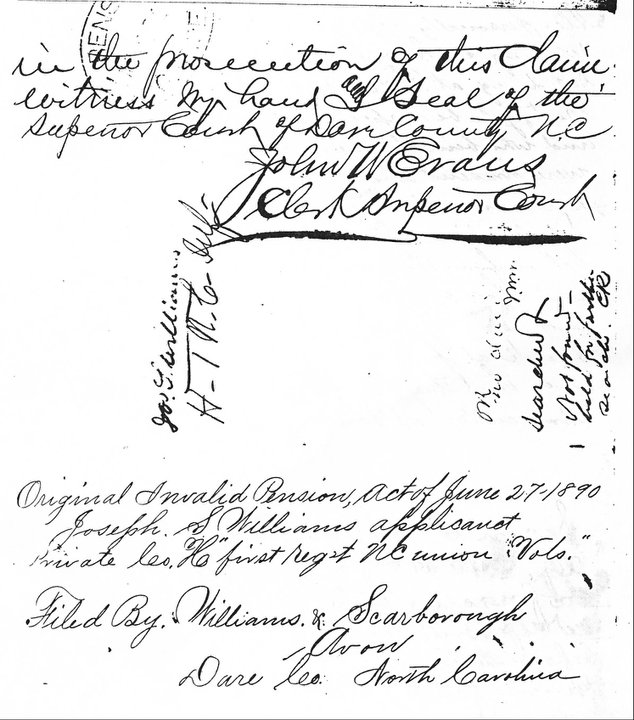 PENS
in the prosecution of this claim.
witness my hand and Seal of the
Superior Court of Dare County NC
John W Evans
Clerk Superior Court
Jos. S. Williams
H - 1 N. C. Inf.
no claim
searched
Not found -
held for further
search. CR
Original Invalid Pension, Act of June 27-1890
Joseph. S Williams applicant
Private Co. "H" first regt NC union "Vols."
Filed By. Williams. & Scarborough
Avon
Dare Co. North Carolina